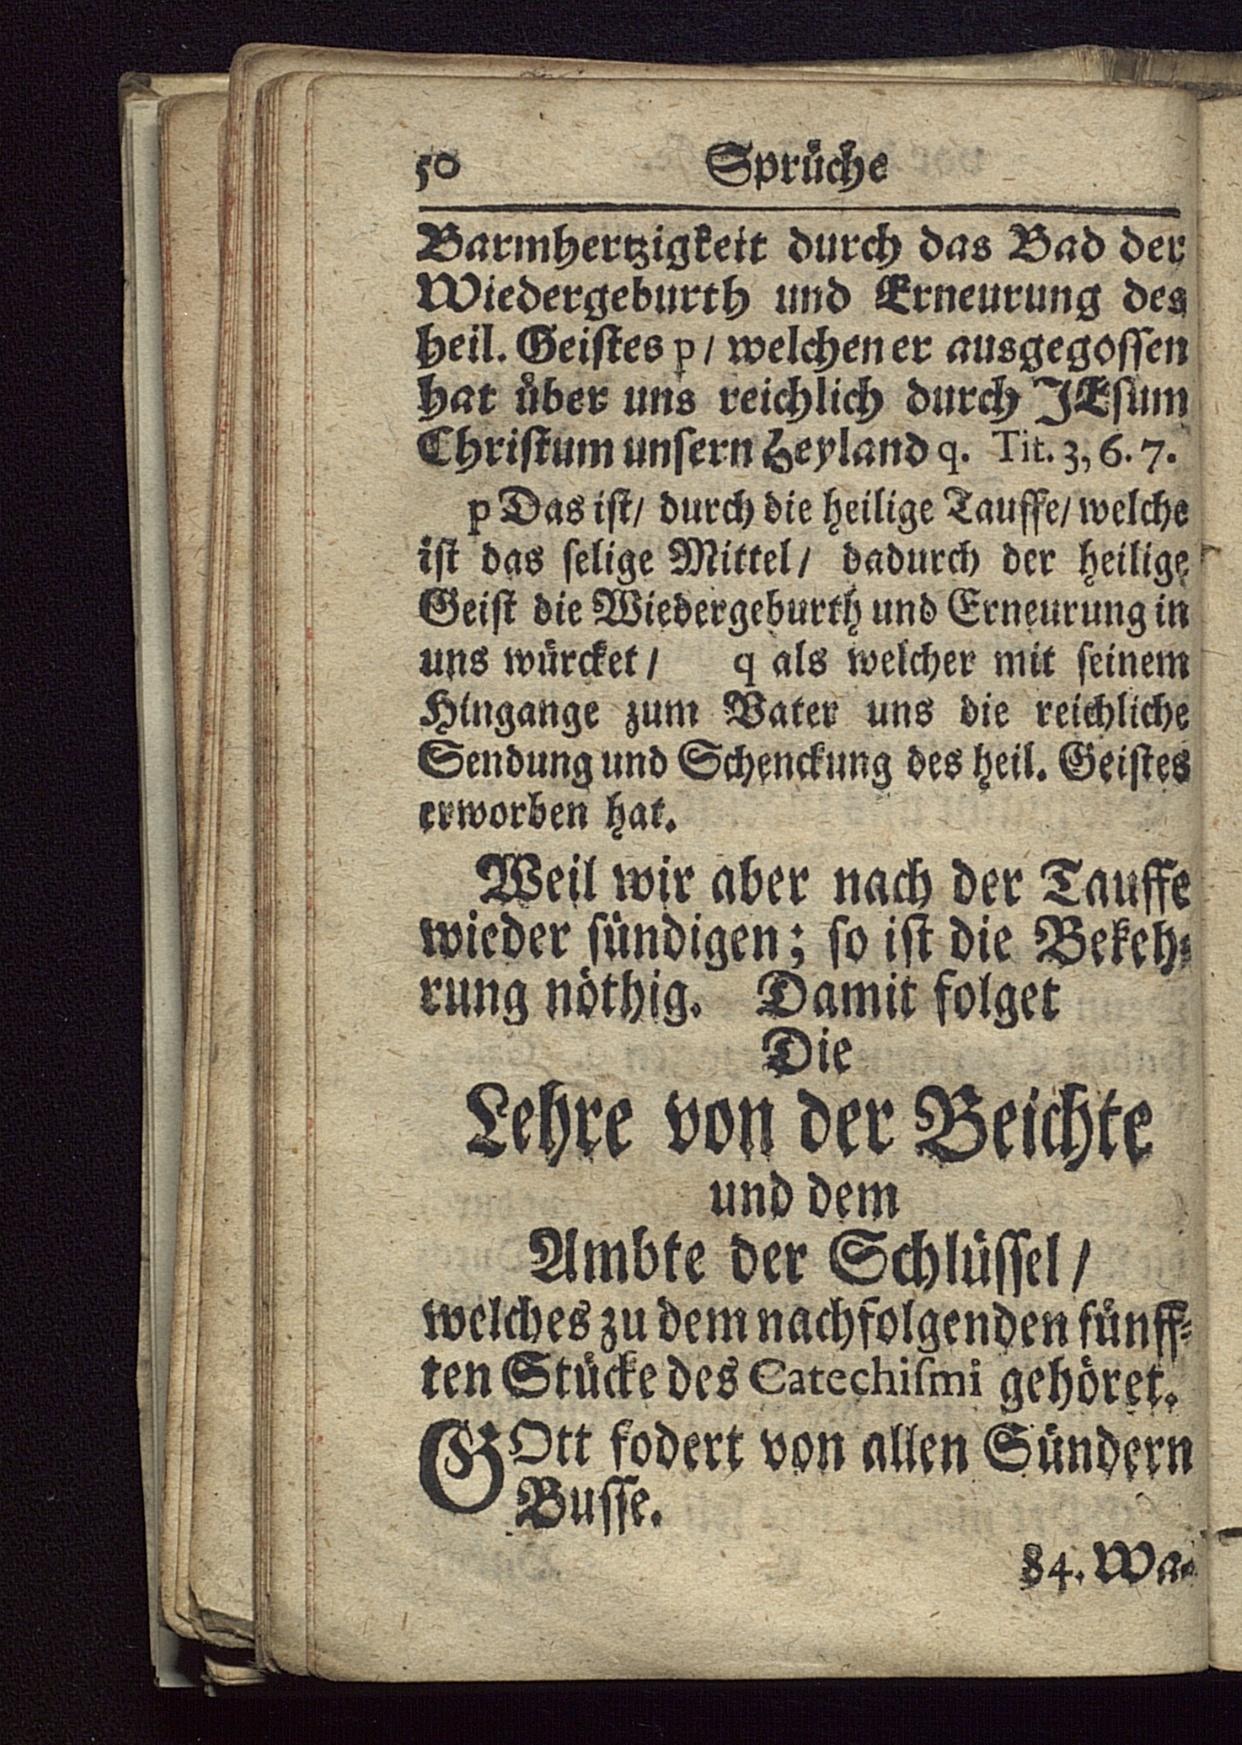 50 Sprüche
Barmhertzigkeit durch das Bad der
Wiedergeburth und Erneurung des
heil. Geistes p / welchen er ausgegossen
hat über uns reichlich durch JEsum
Christum unsern Heyland q. Tit. 3, 6. 7.
p Das ist / durch die heilige Tauffe / welche
ist das selige Mittel / dadurch der heilige
Geist die Wiedergeburth und Erneurung in
uns würcket / q als welcher mit seinem
Hingange zum Vater uns die reichliche
Sendung und Schenckung des heil. Geistes
erworben hat.
Weil wir aber nach der Tauffe
wieder sündigen; so ist die Bekeh-
rung nöthig. Damit folget
Die
Lehre von der Beichte
und dem
Ambte der Schlüssel /
welches zu dem nachfolgenden fünff-
ten Stücke des Catechismi gehöret.
GOtt fodert von allen Sündern
Busse.
84. Wa-